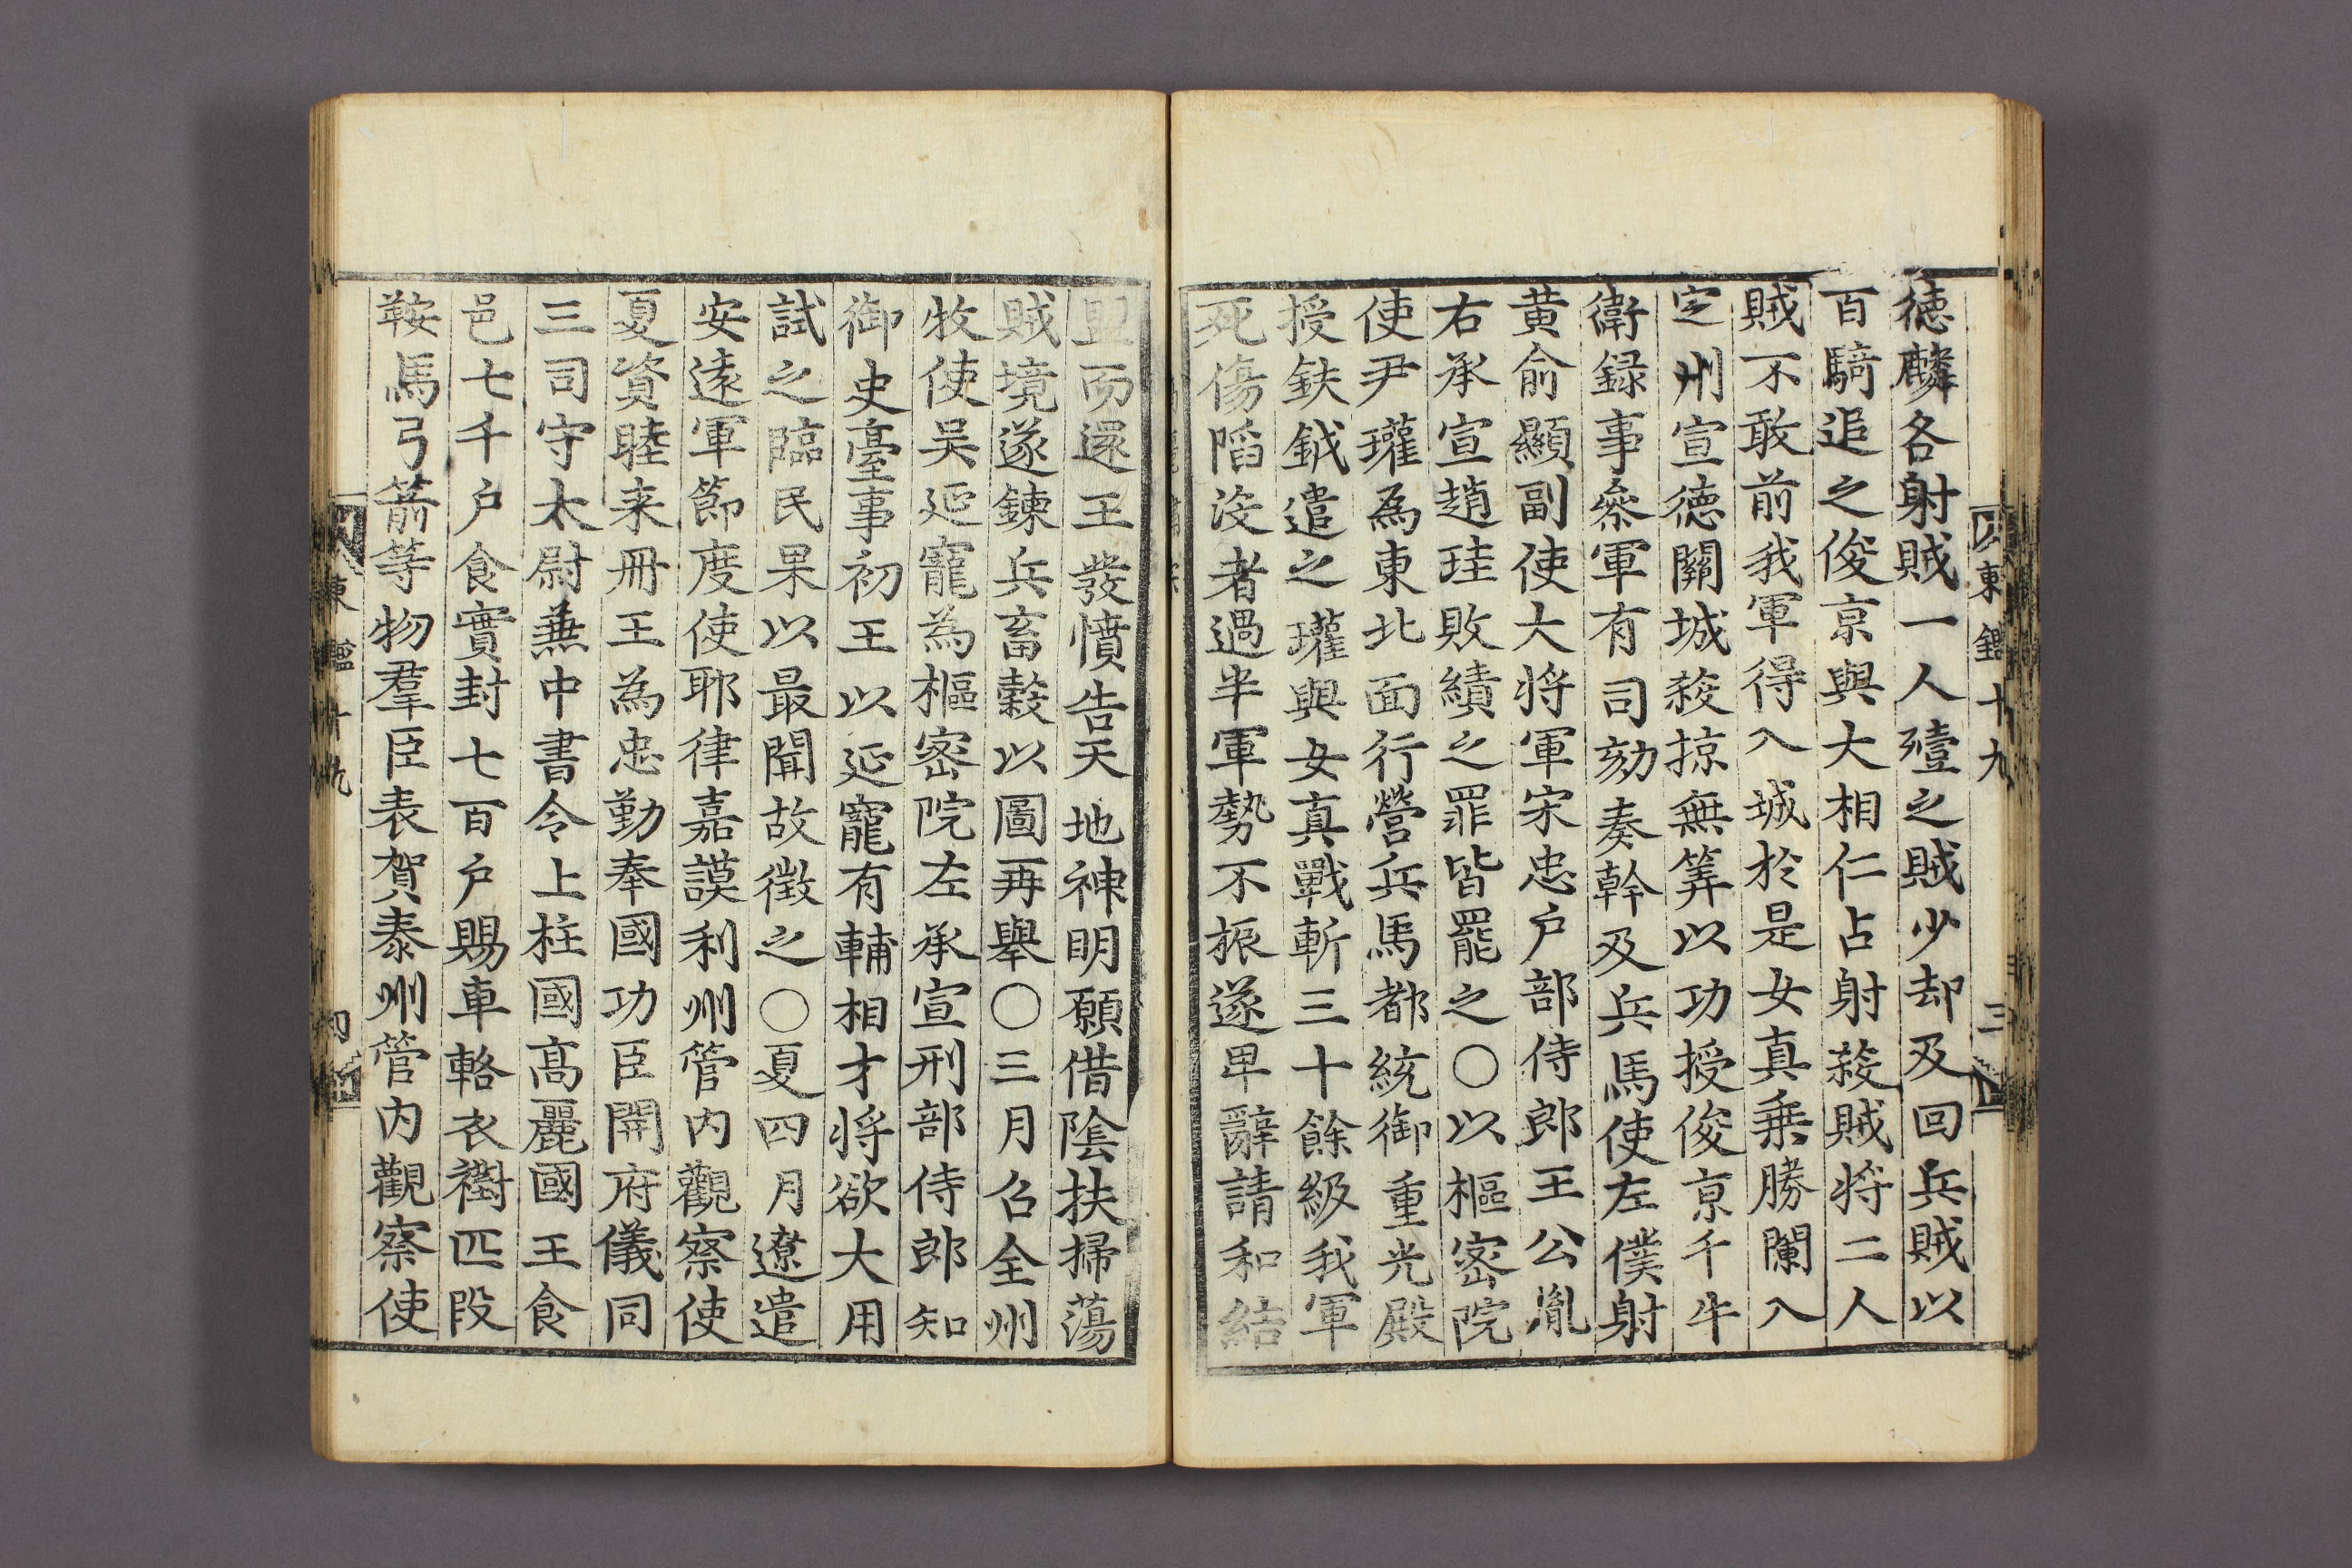 東鑑十九
三
德麟各射賊一人殪之賊少却及回兵賊以
百騎追之俊京與大相仁占射殺賊將二人
賊不敢前我軍得入城於是女真乗勝闌入
定州宣德關城殺掠無筭以功授俊京千牛
衛録事叅軍有司劾奏幹及兵馬使左僕射
黄俞顯副使大将軍宋忠户部侍郎王公胤
右承宣趙珪敗績之罪皆罷之○以樞密院
使尹瓘爲東北面行營兵馬都統御重光殿
授鈇鉞遣之瓘與女真戰斬三十餘級我軍
死傷䧟没者過半軍勢不振遂卑辭請和結
盟而還王發憤告天地神明願借隂扶掃蕩
賊境遂鍊兵畜糓以圖再舉○三月召全州
牧使吴延寵為樞密院左承宣刑部侍郎知
御史臺事初王以延寵有輔相才将欲大用
試之臨民果以最聞故徴之○夏四月遼遣
安逺軍節度使耶律嘉謨利州管内觀察使
夏資睦来冊王為忠勤奉國功臣開府儀同
三司守太尉兼中書令上柱國髙麗國王食
邑七千户食實封七百户賜車輅衣襨匹段
鞍馬弓箭等物羣臣表賀泰州管内觀察使
東鑑十九